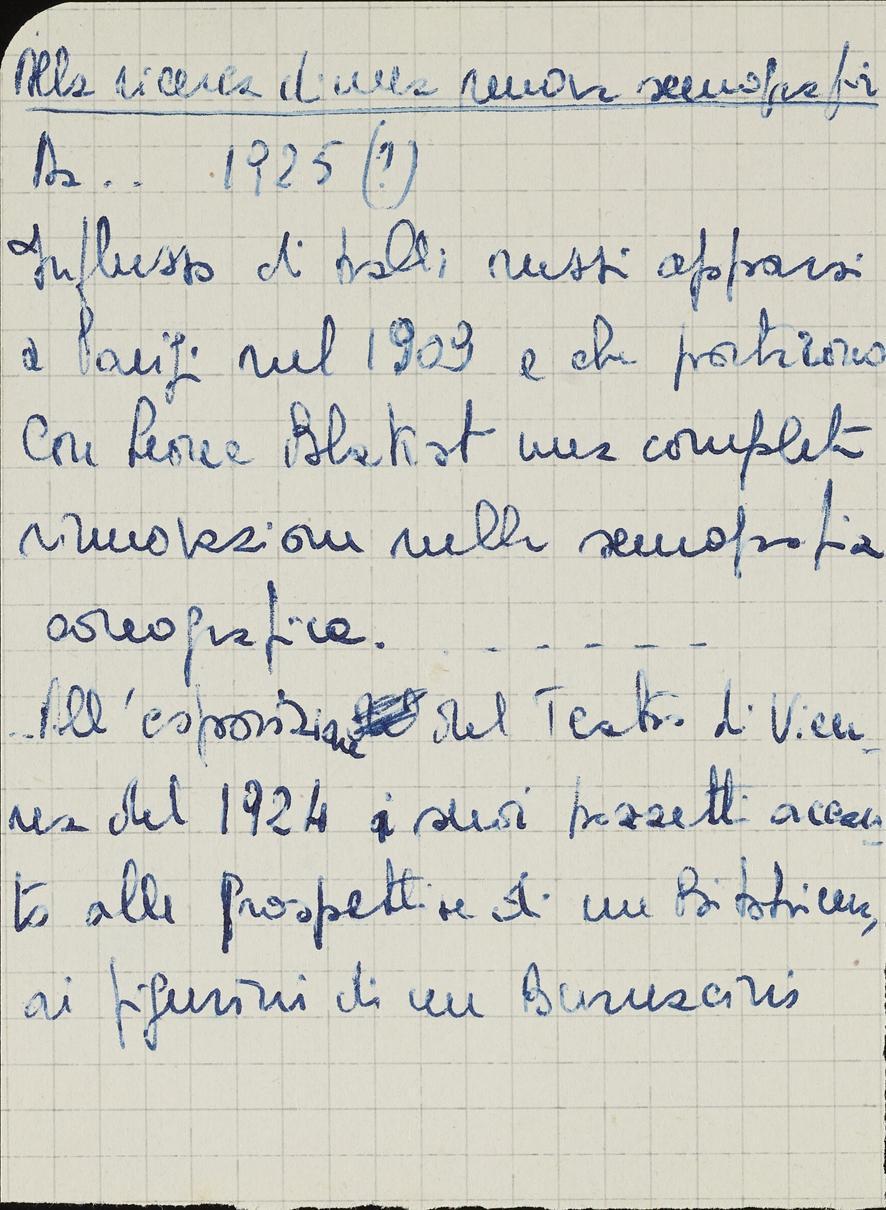 Alla ricerca di una nuova scenografia
Da . . 1925 (?)
Influsso di balli russi apparsi
a Parigi nel 1909 e che portarono
con Leone Blakst una completa
rinnovazione nella scenografia
coreografica. . - - - - -
..All'esposizione del Teatro di Vien-
na del 1924 i suoi bozzetti accan-
to alle prospettive di un Bibbiena,
ai figurini di un Burnacini